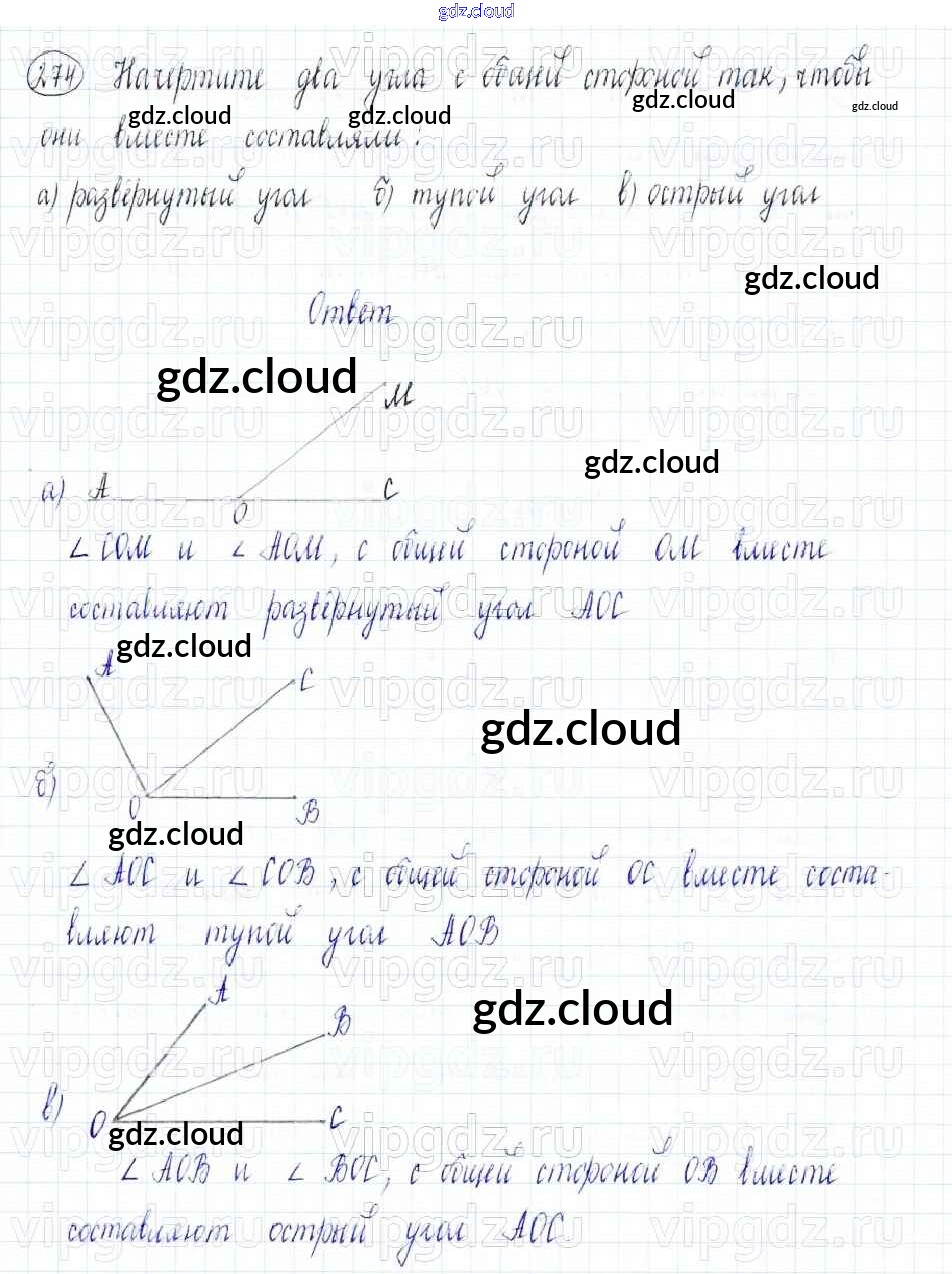 gdz.cloud
274 Начертите два угла с общей стороной так, чтобы
gdz.cloud gdz.cloud gdz.cloud gdz.cloud
они вместе составляли:
а) развёрнутый угол б) тупой угол в) острый угол
gdz.cloud
Ответ
gdz.cloud
M
gdz.cloud
а) A O C
∠COM и ∠AOM, с общей стороной OM вместе
составляют развёрнутый угол AOC
gdz.cloud
A C
gdz.cloud
б) O B
gdz.cloud
∠AOC и ∠COB, с общей стороной OC вместе соста-
вляют тупой угол AOB
A
gdz.cloud
B
в) O C
gdz.cloud
∠AOB и ∠BOC, с общей стороной OB вместе
составляют острый угол AOC
vipgdz.ru